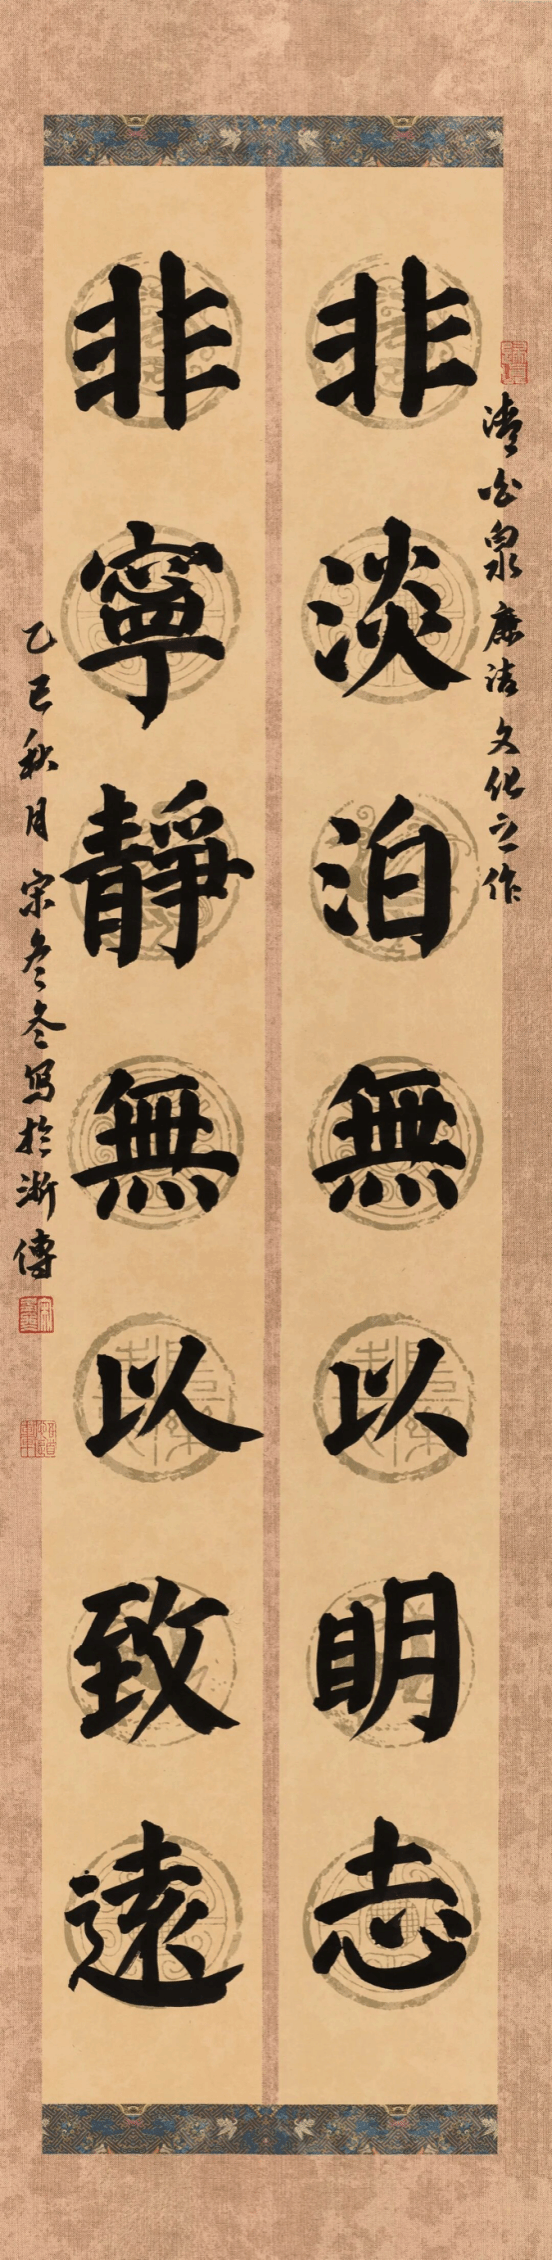 清白泉廉洁文化之作
非淡泊無以明志
非寧靜無以致遠
乙巳秋月宋冬冬写於浙傳